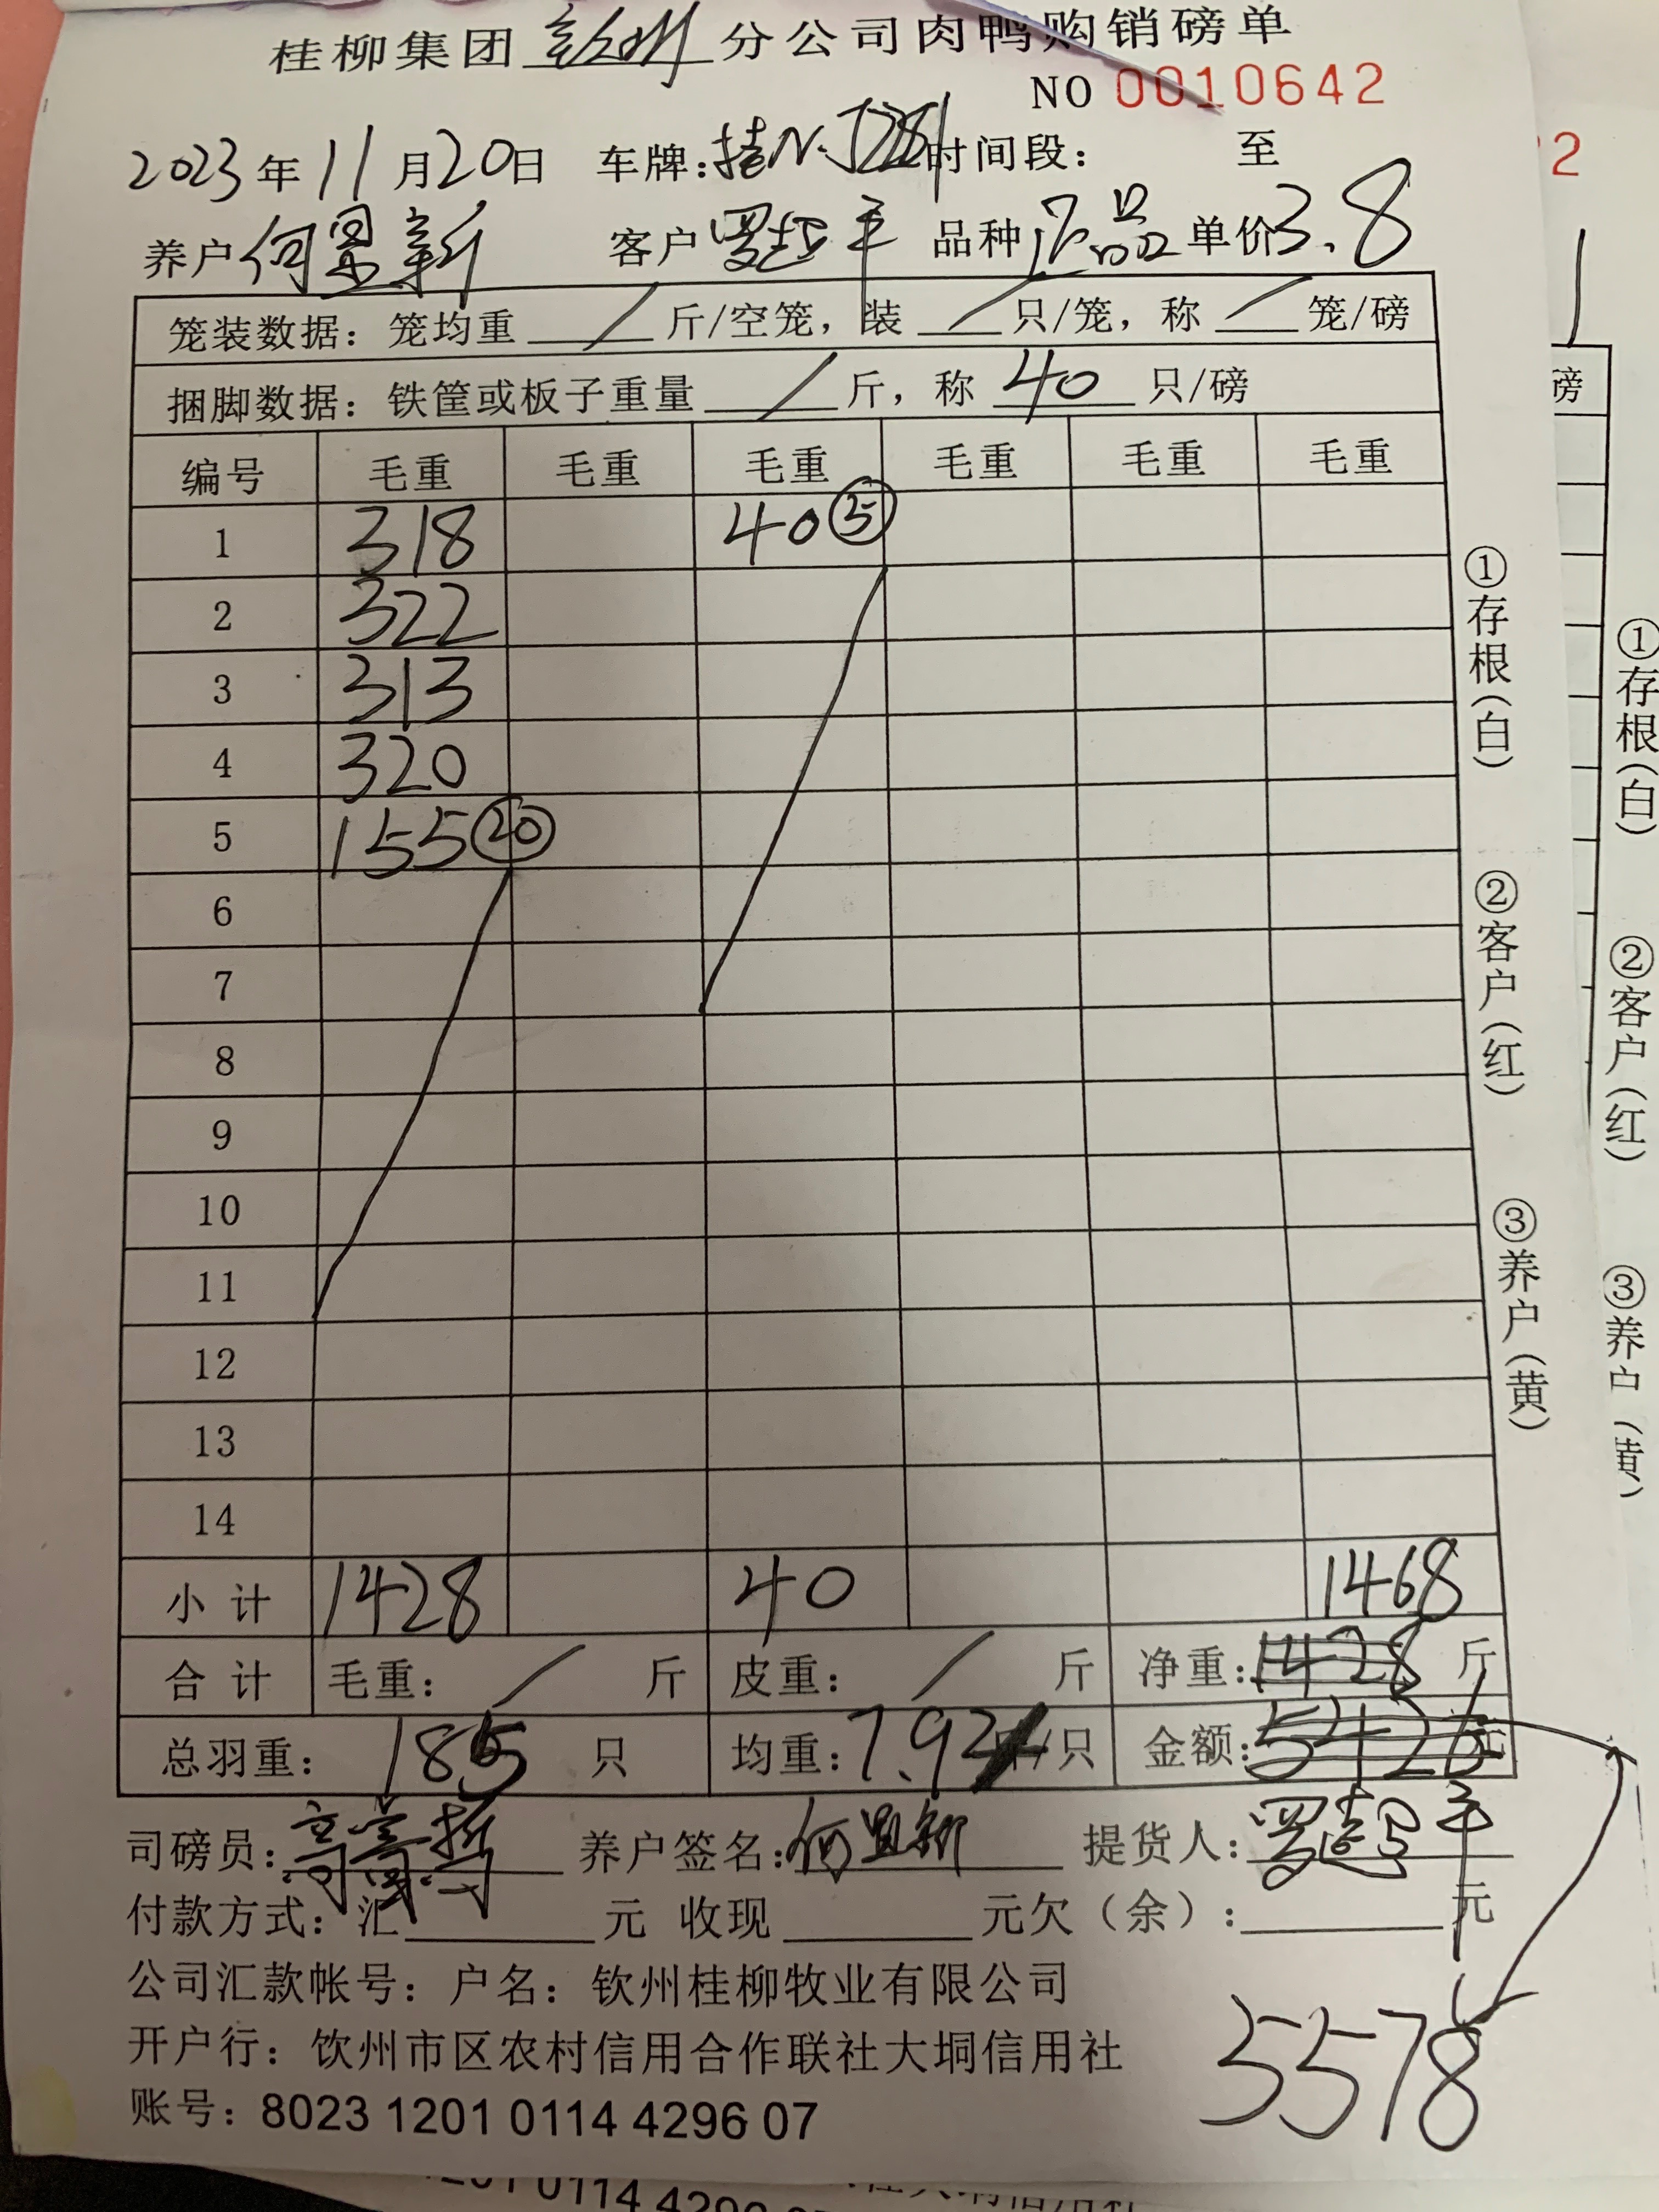 桂柳集团 钦州 分公司肉鸭购销磅单
NO 0010642
2023年11月20日 车牌:桂N.J2281 时间段: 至
养户 何景新 客户 罗超平 品种 正品 单价 3.8
笼装数据: 笼均重 / 斤/空笼, 装 / 只/笼, 称 / 笼/磅
捆脚数据: 铁筐或板子重量 / 斤, 称 40 只/磅
编号 毛重 毛重 毛重 毛重 毛重 毛重
1 318 40⑤
2 322
3 313
4 320
5 155⑳
6
7
8
9
10
11
12
13
14
小计 1428 40 1468
合计 毛重: / 斤 皮重: / 斤 净重: 1428 斤
总羽重: 185 只 均重: 7.93 斤/只 金额: 5426 元
司磅员: 养户签名: 何景新 提货人: 罗超平
付款方式: 汇 元 收现 元欠(余): 元
公司汇款帐号: 户名: 钦州桂柳牧业有限公司
开户行: 饮州市区农村信用合作联社大垌信用社
账号: 8023 1201 0114 4296 07
5578
①存根(白)
②客户(红)
③养户(黄)
2
磅
①存根(白)
②客户(红)
③养户(黄)